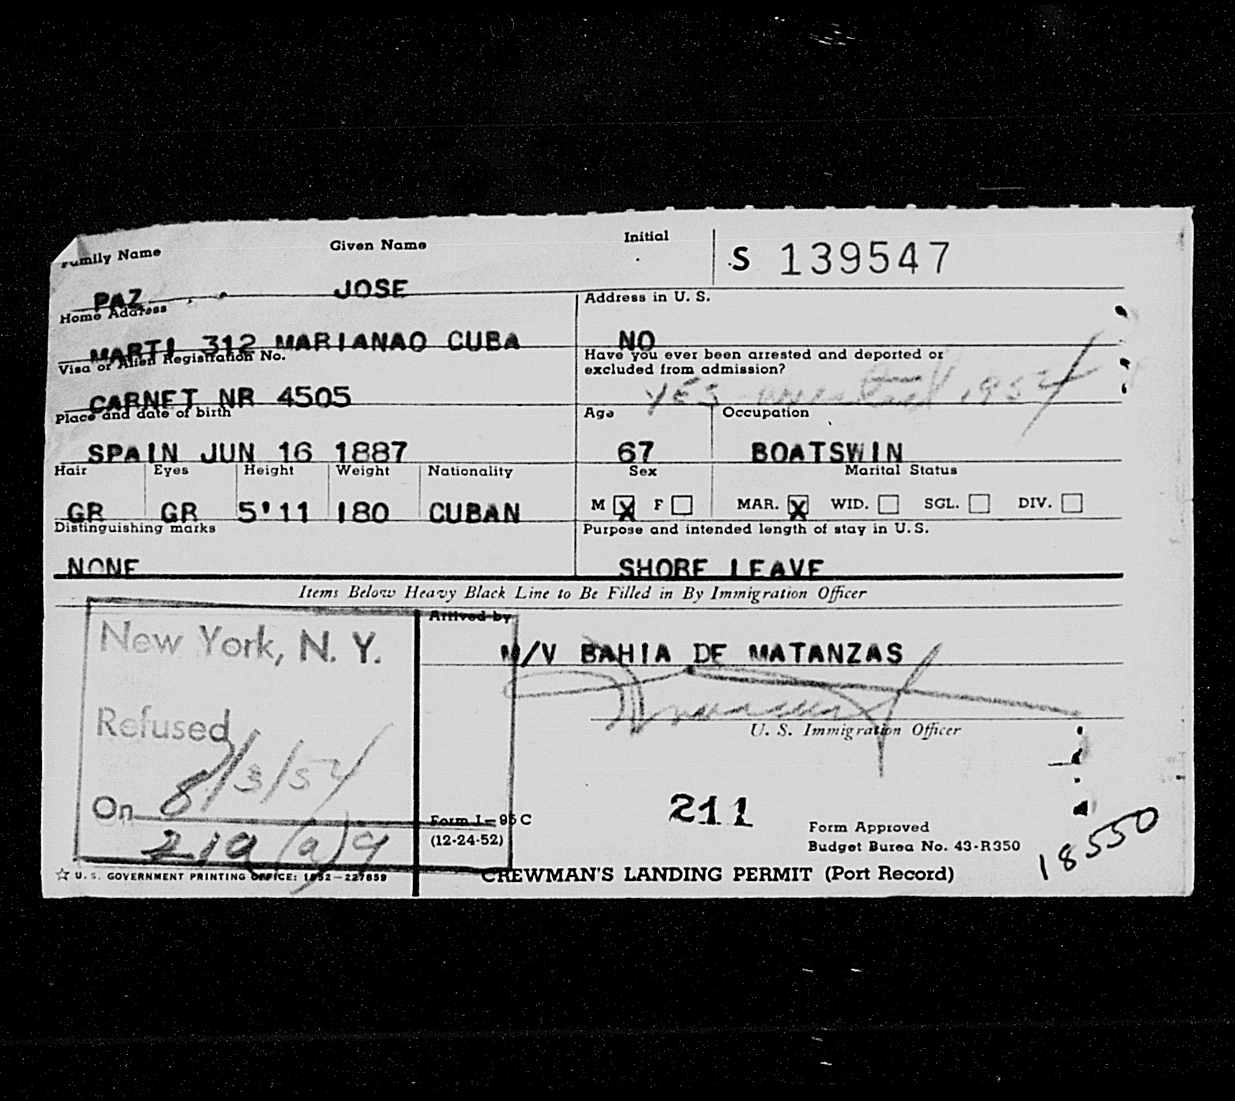 Family Name Given Name Initial S 139547
PAZ JOSE
Home Address Address in U. S.
MARTI 312 MARIANAO CUBA NO
Visa or Alien Registration No. Have you ever been arrested and deported or
excluded from admission?
CARNET NR 4505 YES 1954
Place and date of birth Age Occupation
SPAIN JUN 16 1887 67 BOATSWIN
Hair Eyes Height Weight Nationality Sex Marital Status
GR GR 5'11 180 CUBAN M X F MAR. X WID. SGL. DIV.
Distinguishing marks Purpose and intended length of stay in U. S.
NONE SHORE LEAVE
Items Below Heavy Black Line to Be Filled in By Immigration Officer
Arrived by
New York, N. Y. M/V BAHIA DE MATANZAS
Refused U. S. Immigration Officer
8/3/54
On 211
212 (a) 9
Form I-95 C Form Approved
(12-24-52) Budget Bureau No. 43-R350
18550
☆ U. S. GOVERNMENT PRINTING OFFICE: 1952-227659 CREWMAN'S LANDING PERMIT (Port Record)